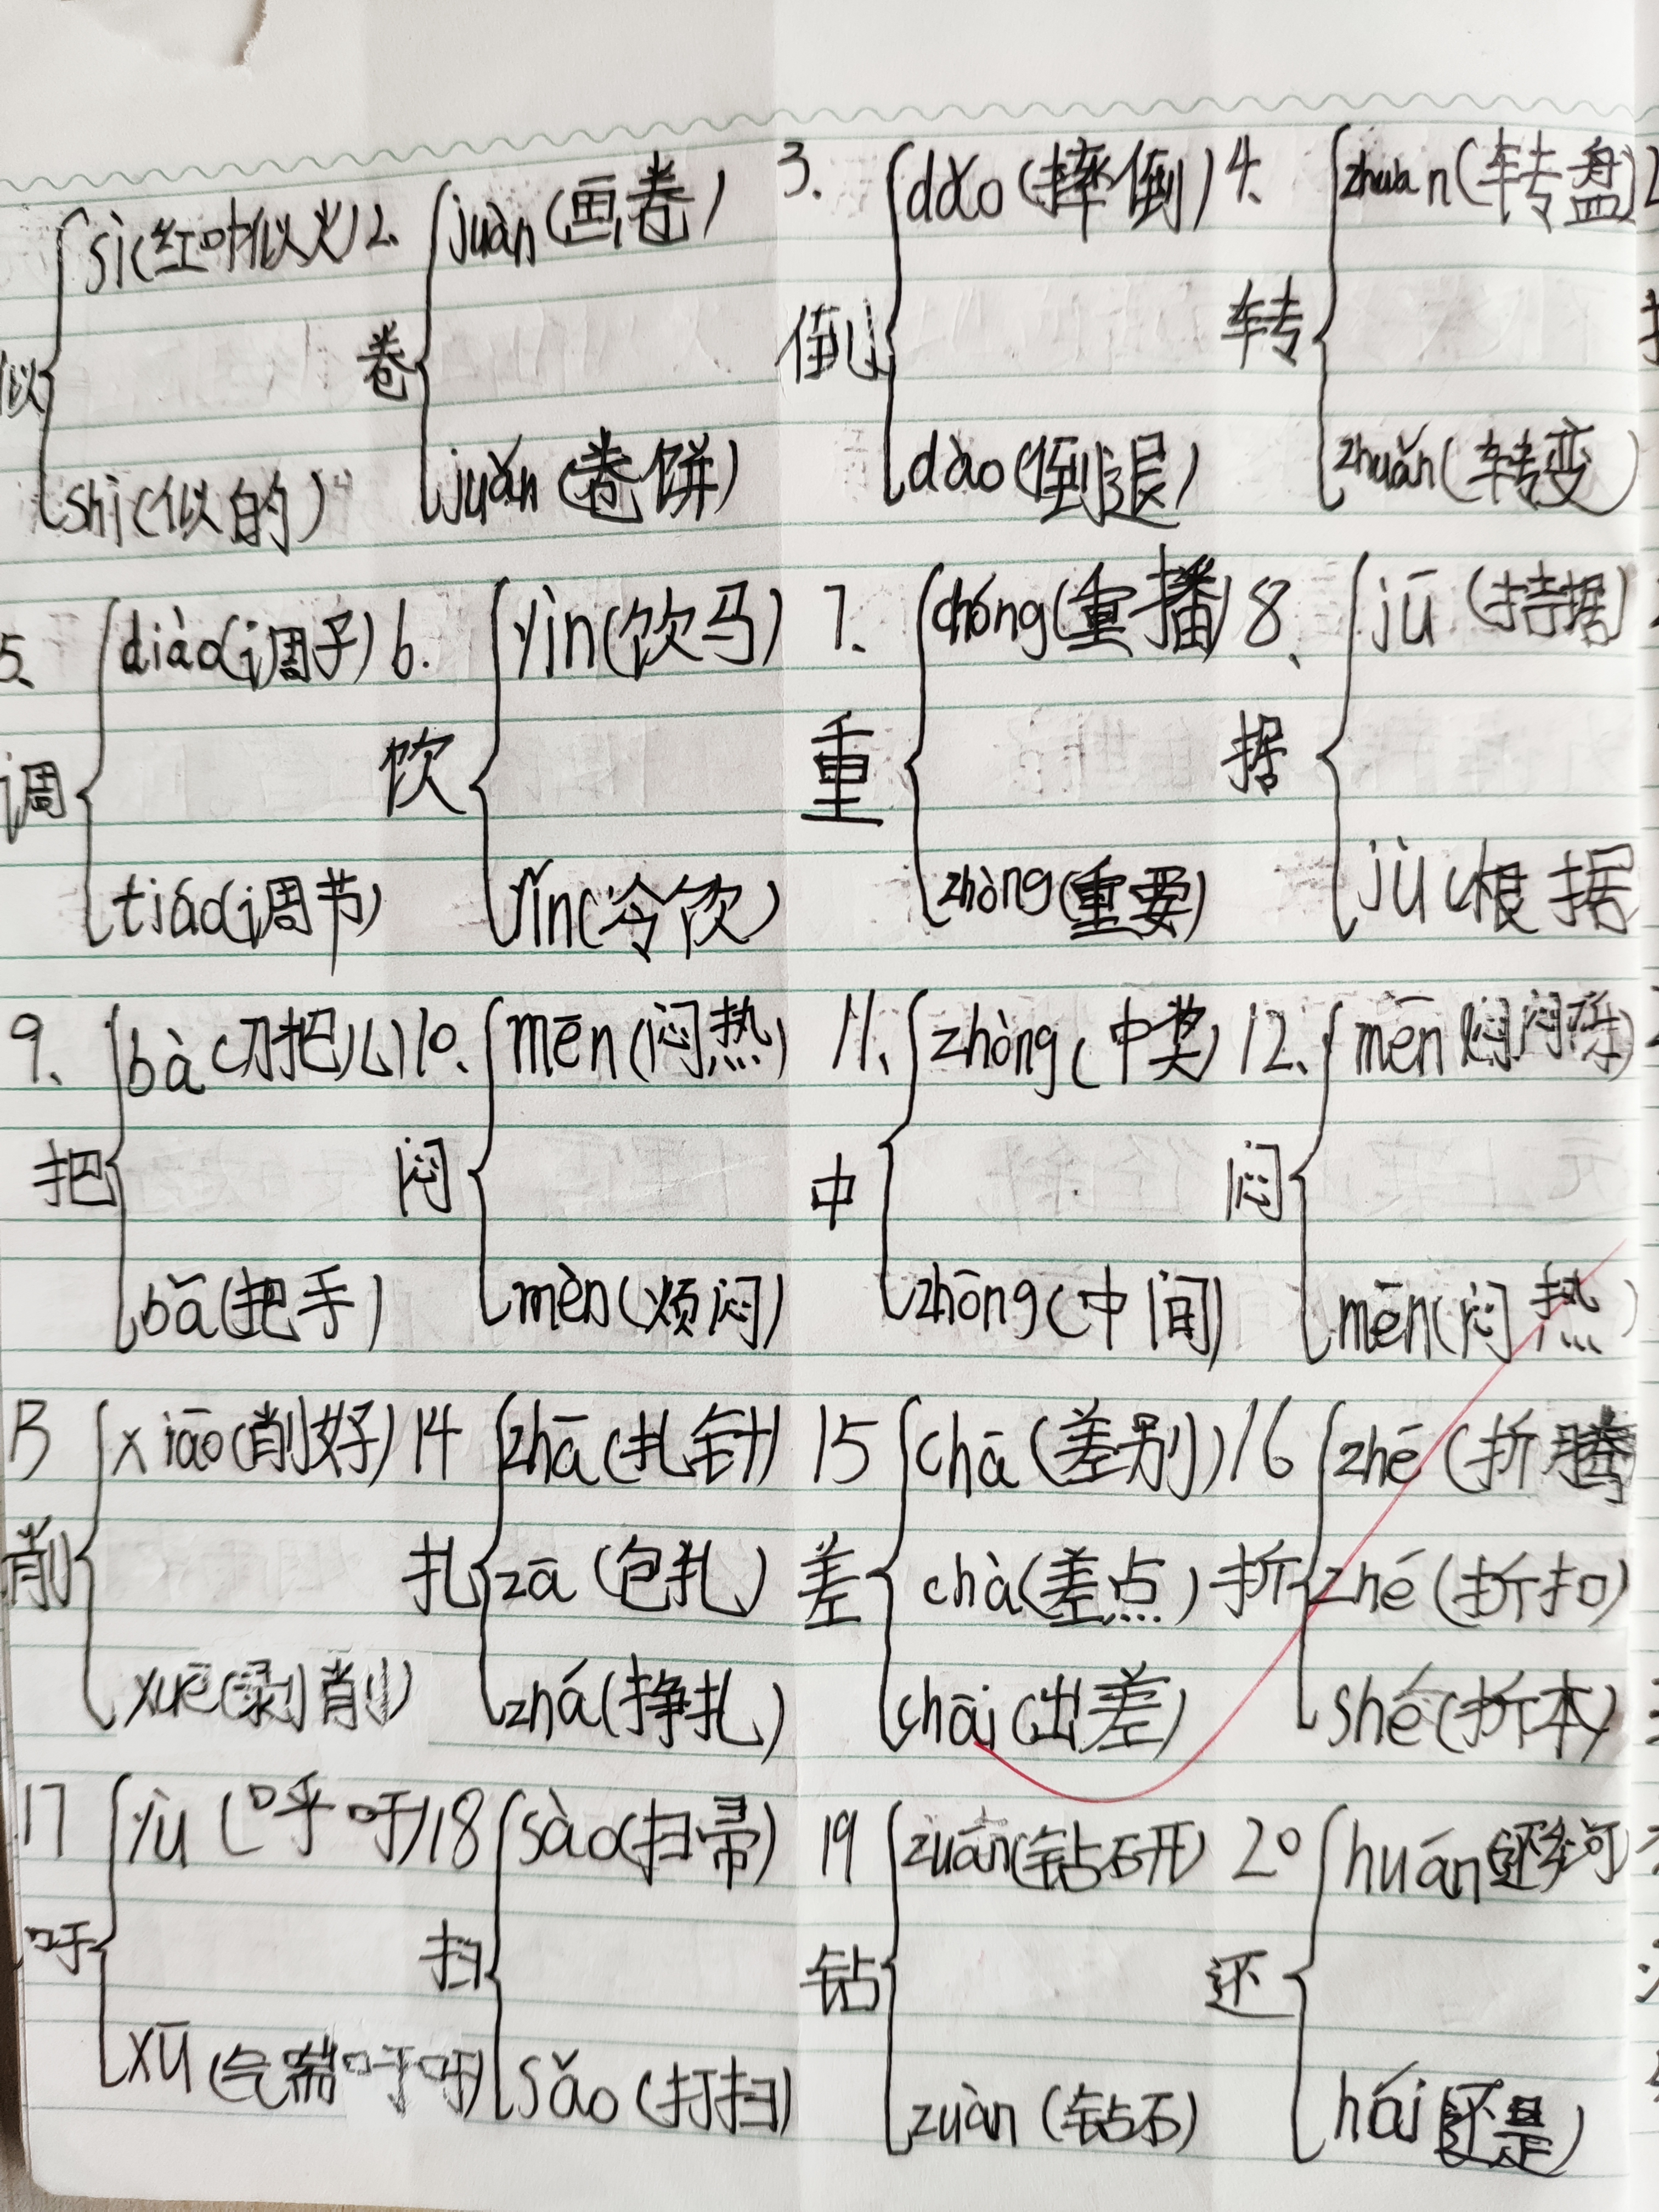 sì(红叶似火) 2. juàn(画卷) 3. dǎo(摔倒) 4. zhuàn(转盘)
似 卷 倒 转
shì(似的) juǎn(卷饼) dào(倒退) zhuǎn(转变)
5. diào(调子) 6. yìn(饮马) 7. chóng(重播) 8. jū(拮据)
调 饮 重 据
tiáo(调节) yǐn(冷饮) zhòng(重要) jù(根据
9. bà(刀把儿) 10. mēn(闷热) 11. zhòng(中奖) 12. mēn
把 闷 中 闷
bǎ(把手) mèn(烦闷) zhōng(中间) mēn(闷热)
13 xiāo(削好) 14 zhā(扎针) 15 chā(差别) 16 zhē(折腾
削 扎 zā(包扎) 差 chà(差点) 折 zhé(折扣)
xuē(剥削) zhá(挣扎) chāi(出差) shé(折本)
17 yù(呼吁) 18 sào(扫帚) 19 zuān(钻研) 20 huán
吁 扫 钻 还
xū(气喘吁吁) sǎo(打扫) zuàn(钻石) hái(还是)